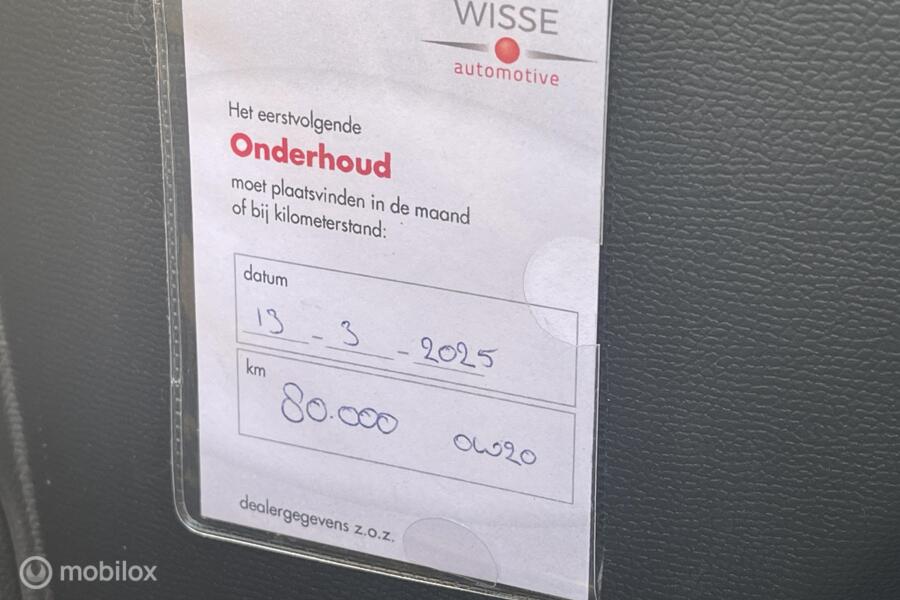 WISSE
automotive
Het eerstvolgende
Onderhoud
moet plaatsvinden in de maand
of bij kilometerstand:
datum
13 - 3 - 2025
km
80.000 0W20
dealergegevens z.o.z.
mobilox